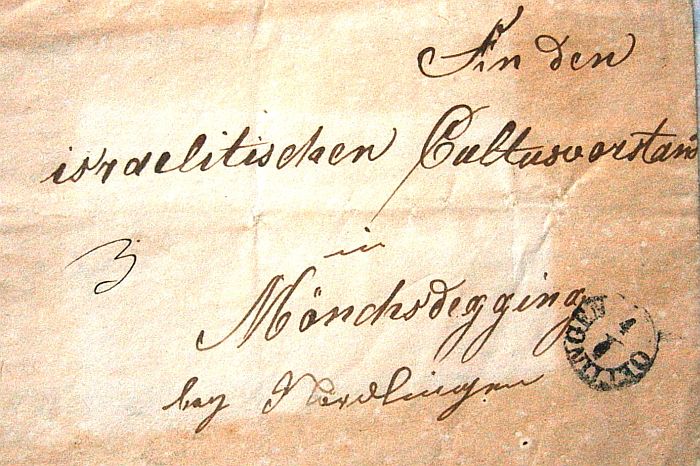 An den
israelitischen Cultusvorstand
in
3
Mönchsdegging
bey Nördlingen
OETTINGEN